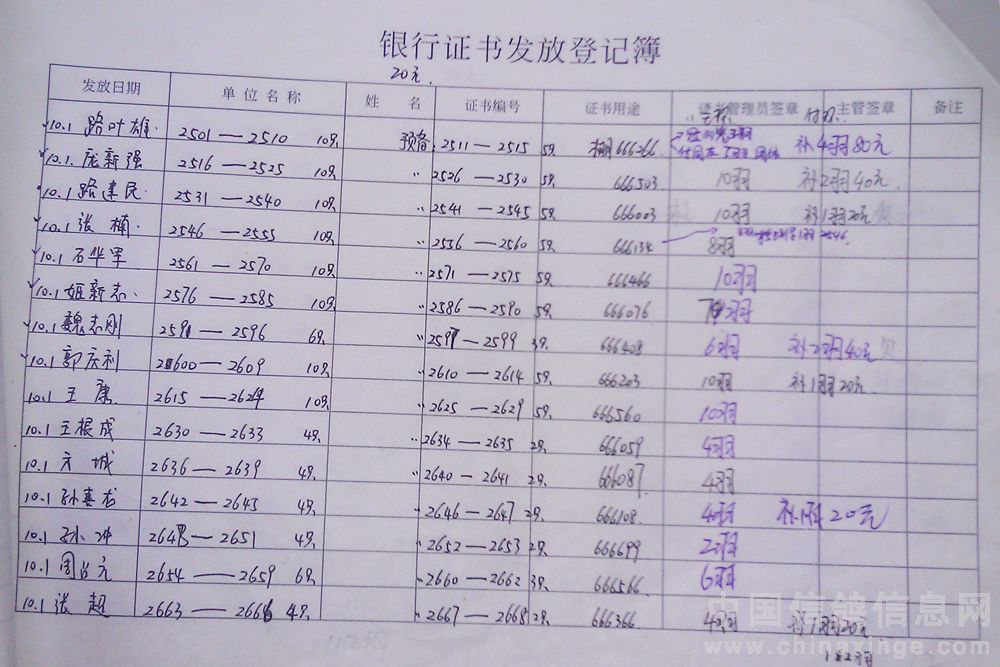 银行证书发放登记簿
20元.
发放日期 单位名称 姓名 证书编号 证书用途 证书管理员签章 主管签章 备注
10.1 路叶雄 2501—2510 10只 预备 2511—2515 5只 棚666266 补4羽80元
10.1 庞新强 2516—2525 10只 〃 2526—2530 5只 666503 10羽 补2羽40元
10.1 路建民 2531—2540 10只 〃 2541—2545 5只 666003 10羽 补1羽20元 欠
10.1 张楠 2546—2555 10只 〃 2556—2560 5只 666134 8羽
10.1 石华军 2561—2570 10只 〃 2571—2575 5只 666466 10羽
10.1 姬新志 2576—2585 10只 〃 2586—2590 5只 666076
10.1 魏志刚 2591—2596 6只 〃 2597—2599 3只 666408 6羽 补2羽40元 欠
10.1 郭庆利 2600—2609 10只 〃 2610—2614 5只 666203 10羽 补1羽20元
10.1 王康 2615—2624 10只 〃 2625—2629 5只 666560 10羽
10.1 王根成 2630—2633 4只 〃 2634—2635 2只 666059 4羽
10.1 方城 2636—2639 4只 〃 2640—2641 2只 666087 4羽
10.1 孙喜龙 2642—2645 4只 〃 2646—2647 2只 666108 4羽 20元
10.1 孙冲 2648—2651 4只 〃 2652—2653 2只 666699 2羽
10.1 周占元 2654—2659 6只 〃 2660—2662 3只 666566 6羽
10.1 张超 2663—2666 4只 〃 2667—2668 2只 666366 4羽 补1羽20元
182羽
中国信鸽信息网
www.chinaxinge.com